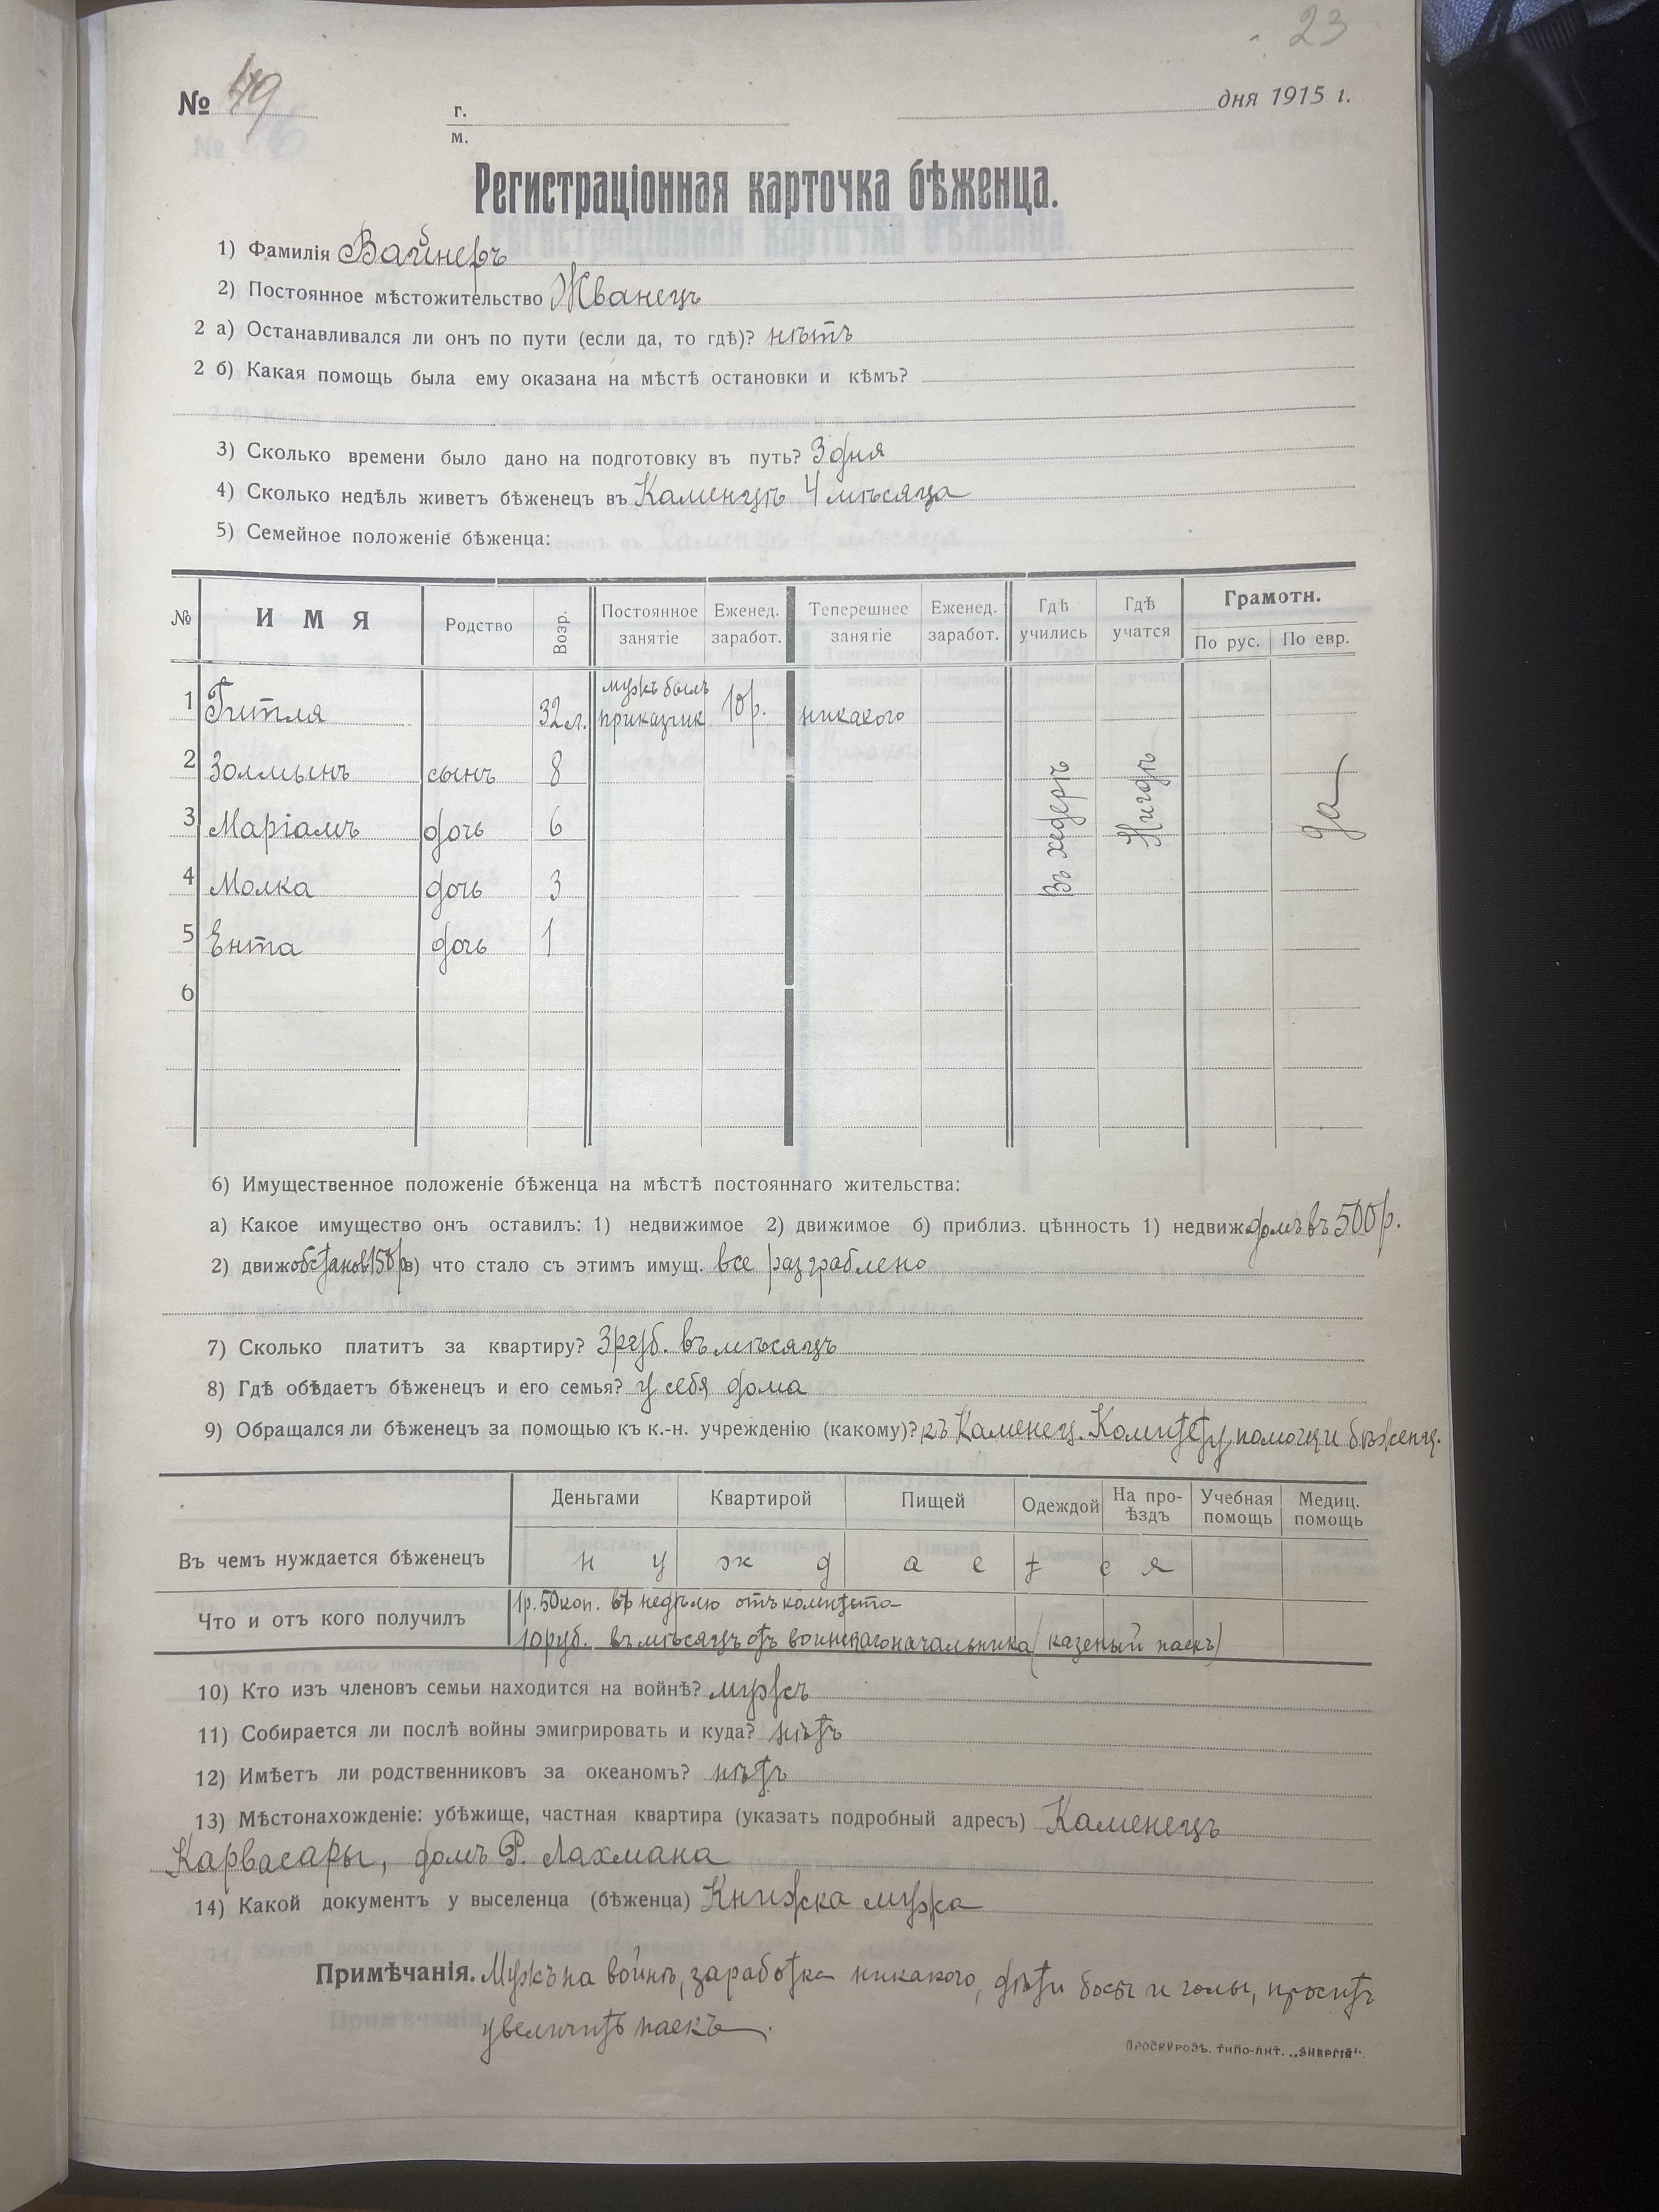 23
№ 49 г. дня 1915 г.
м.
Регистраціонная карточка бѣженца.
1) Фамилія Вайнеръ
2) Постоянное мѣстожительство Жванецъ
2 а) Останавливался ли онъ по пути (если да, то гдѣ)? нѣтъ
2 б) Какая помощь была ему оказана на мѣстѣ остановки и кѣмъ?
3) Сколько времени было дано на подготовку въ путь? 3 дня
4) Сколько недѣль живетъ бѣженецъ въ Каменцѣ 4 мѣсяца
5) Семейное положеніе бѣженца:
№ ИМЯ Родство Возр. Постоянное занятіе Еженед. заработ. Теперешнее занятіе Еженед. заработ. Гдѣ учились Гдѣ учатся Грамотн. По рус. По евр.
1 Гитля 32 л. мужъ былъ приказчик 10 р. никакого
2 Золмынъ сынъ 8 Въ хедерѣ Нигдѣ да
3 Маріамъ дочь 6
4 Молка дочь 3
5 Ента дочь 1
6
6) Имущественное положеніе бѣженца на мѣстѣ постояннаго жительства:
а) Какое имущество онъ оставилъ: 1) недвижимое 2) движимое б) приблиз. цѣнность 1) недвиж домъ въ 500 р.
2) движ обстанов 150 р в) что стало съ этимъ имущ. все разграблено
7) Сколько платитъ за квартиру? 3 руб. въ мѣсяцъ
8) Гдѣ обѣдаетъ бѣженец и его семья? у себя дома
9) Обращался ли бѣженец за помощью къ к.-н. учрежденію (какому)? къ Каменец. Комитету помощи бѣженц.
Деньгами Квартирой Пищей Одеждой На про-ѣздъ Учебная помощь Медиц. помощь
Въ чемъ нуждается бѣженецъ н у ж д а е т с я
Что и отъ кого получилъ 1 р. 50 коп. въ недѣлю отъ комитета
10 руб. въ мѣсяцъ отъ воинскаго начальника (казеный паекъ)
10) Кто изъ членовъ семьи находится на войнѣ? мужъ
11) Собирается ли послѣ войны эмигрировать и куда? нѣтъ
12) Имѣетъ ли родственниковъ за океаномъ? нѣтъ
13) Мѣстонахожденіе: убѣжище, частная квартира (указать подробный адресъ) Каменецъ
Карвасары, домъ Р. Лахмана
14) Какой документъ у выселенца (бѣженца) Книжка мужа
Примѣчанія. Мужъ на войнѣ, заработка никакого, дѣти босы и голы, проситъ
увеличить паекъ.
ПРОСКУРОВЪ. ТИПО-ЛИТ. „ЭНЕРГІЯ".